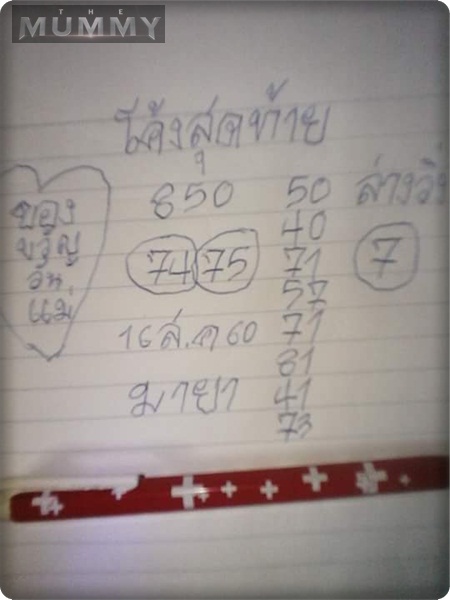 THE
MUMMY
โค้งสุดท้าย
850
74 75
16 ส.ค 60
มายา
50
40
71
57
71
81
41
73
ล่างวิ่ง
7
ของ
ขวัญ
วัน
แม่